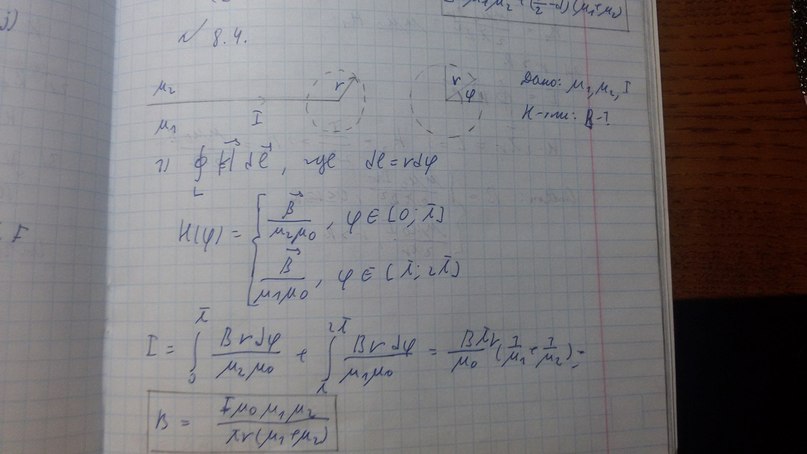 j)
μ₁μ₂ + (π/2 - α)(μ₁-μ₂)
№ 8.4.
μ₂
μ₁
I
r
r
φ
Дано: μ₁, μ₂, I
Н-ти: B-?
1) ∮_L |H⃗| dl⃗, где dl = rdφ
H(φ) = { B⃗/μ₂μ₀, φ ∈ [0; π]
B⃗/μ₁μ₀, φ ∈ [π; 2π]
I = ∫₀^π Brdφ/μ₂μ₀ + ∫_π^2π Brdφ/μ₁μ₀ = Bπr/μ₀ (1/μ₁ + 1/μ₂) =
B = Iμ₀μ₁μ₂/πr(μ₁+μ₂)